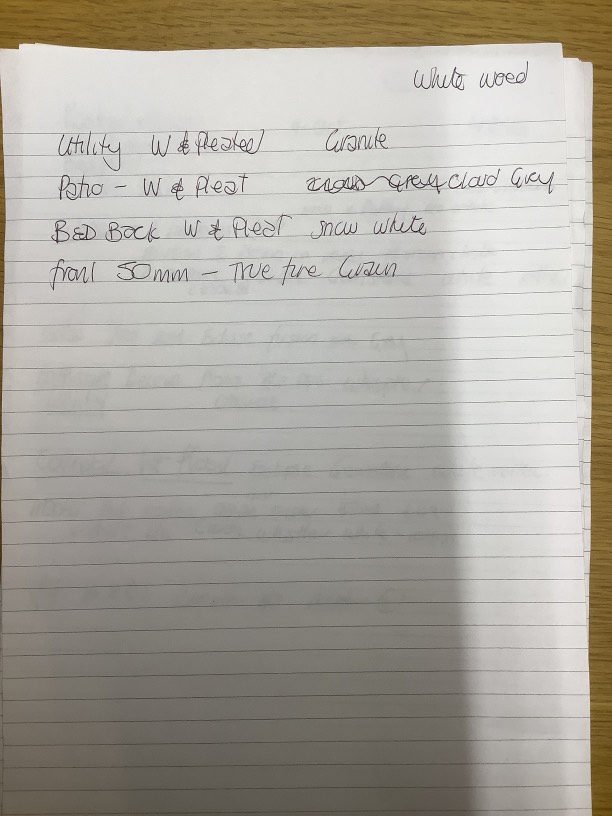 White wood
Utility W & Pleated Granite
Patio - W & Pleat Grey Cloud Grey
BED BACK W & Pleat snow white
front 50mm - True fine Grain